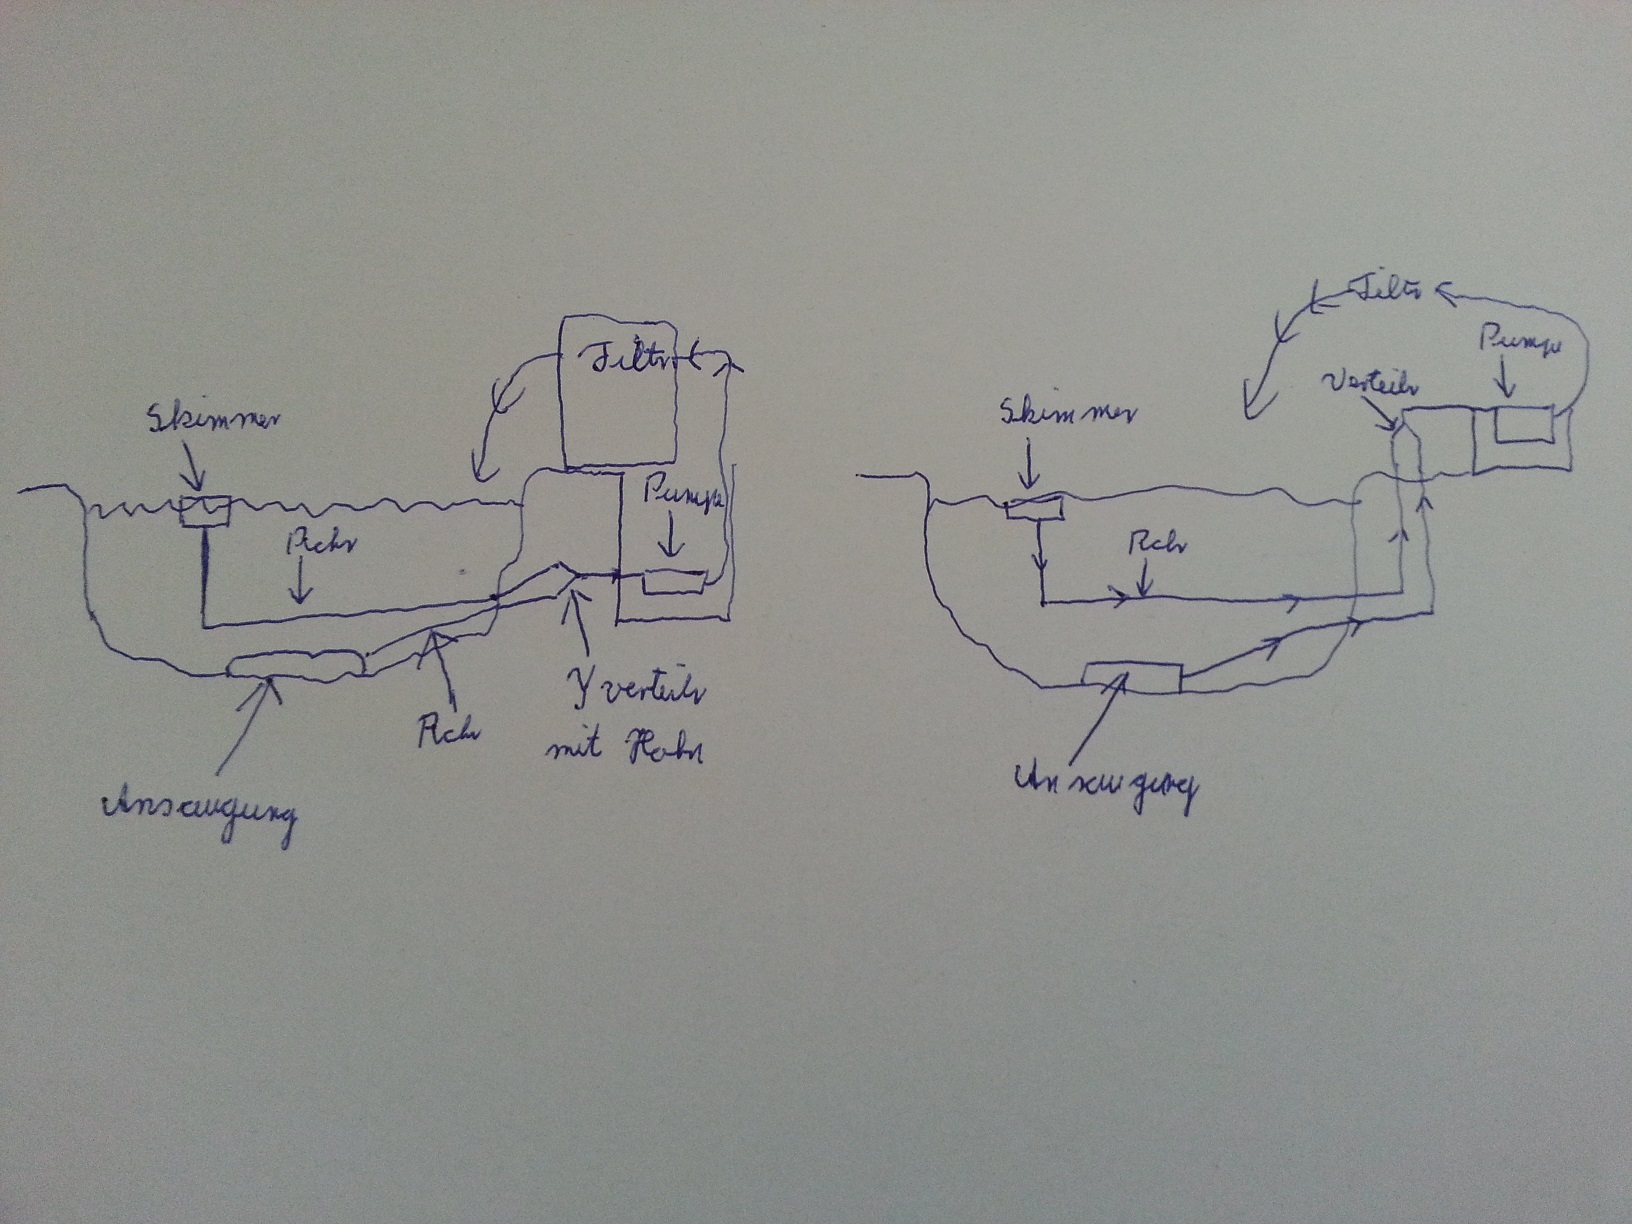 Skimmer
Rohr
Filter
Pumpe
Y verteiler
mit Hahn
Rohr
Ansaugung
Filter
Pumpe
Verteiler
Skimmer
Rohr
Ansaugung